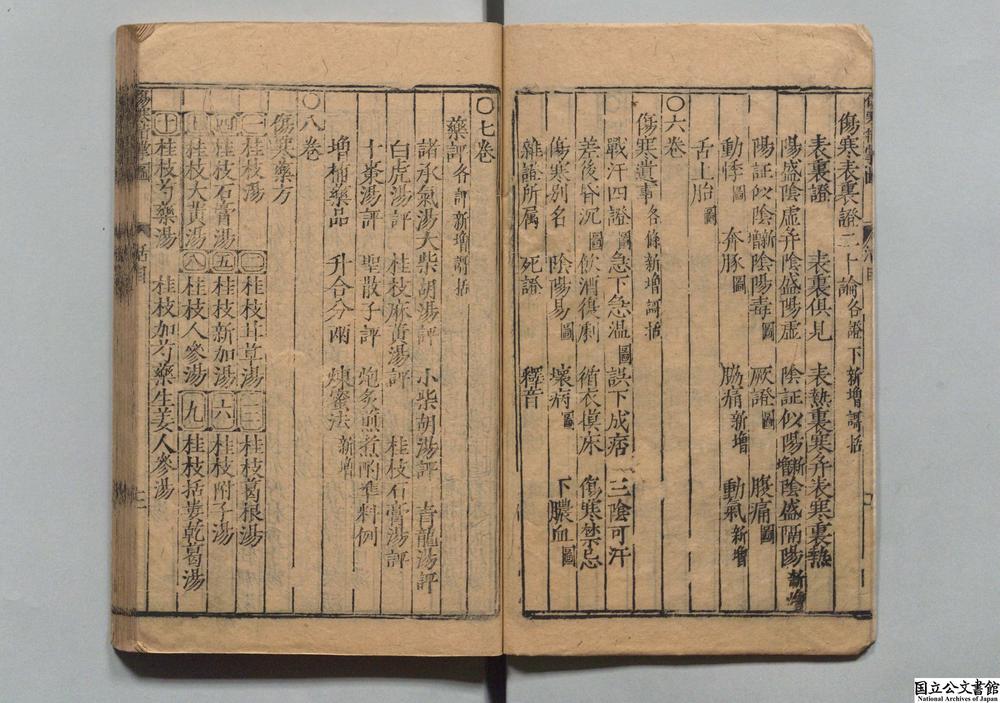 傷寒表裏證二十論各證下新增謌括
表裏證 表裏俱見 表熱裏寒并表寒裏熱
陽盛陰虛并陰盛陽虛 陰証似陽新增 陰盛隔陽新增
陽証似陰新增 陰陽毒圖 厥證圖 腹痛圖
動悸圖 奔豚圖 脇痛新增 動氣新增
舌上胎圖
○六卷
傷寒遺事各條新增謌括
戰汗四證圖 急下急溫圖 誤下成痞 三陰可汗
差後昏沉圖 飲酒復劇 循衣摸床 傷寒禁忌
傷寒別名 陰陽易圖 壞病圖 下膿血圖
雜證所屬 死證 釋音
○七卷
藥評各評新增謌括
諸承氣湯大柴胡湯評 小柴胡湯評 青龍湯評
白虎湯評 桂枝麻黃湯評 桂枝石膏湯評
十棗湯評 聖散子評 炮炙煎煮附準料例
增補藥品 升合分兩 煉蜜法新增
○八卷
傷寒藥方
一桂枝湯 二桂枝甘草湯 三桂枝葛根湯
四桂枝石膏湯 五桂枝新加湯 六桂枝附子湯
七桂枝大黃湯 八桂枝人參湯 九桂枝括蔞乾葛湯
十桂枝芍藥湯 桂枝加芍藥生姜人參湯
国立公文書館
National Archives of Japan